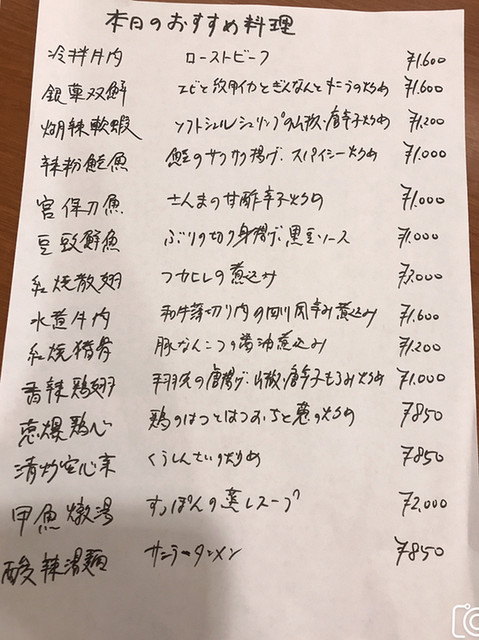 本日のおすすめ料理
冷拌牛肉 ローストビーフ ¥1.600
銀菓双鮮 エビと紋甲イカとぎんなんときのこの炒め ¥1.600
煳辣軟蝦 ソフトシェルシュリンプの山椒・唐辛子炒め ¥1.200
辣粉鮭魚 鮭のサクサク揚げ、スパイシー炒め ¥1.000
宮保刀魚 さんまの甘酢辛子炒め ¥1.000
豆豉鰤魚 ぶりの切り身揚げ、黒豆ソース ¥1.000
紅焼散翅 フカヒレの煮込み ¥3.000
水煮牛肉 和牛薄切り肉の四川風辛み煮込み ¥1.600
紅焼猪骨 豚なんこつの醤油煮込み ¥1.200
香辣鶏翅 手羽先の唐揚げ、山椒・唐辛子もろみ炒め ¥1.000
葱爆鶏心 鶏のはつとはつおちと葱の炒め ¥850
清炒空心菜 くうしんさいの炒め ¥850
甲魚燉湯 すっぽんの蒸しスープ ¥2.000
酸辣湯麺 サンラータンメン ¥850